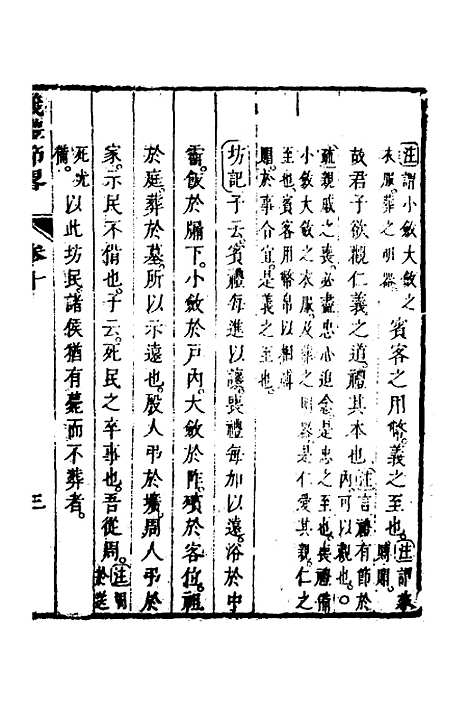 注謂小斂大斂之
衣服葬之明器。
賓客之用幣義之至也。
注謂來
賻賵。
故君子欲觀仁義之道禮其本也。
注言禮有節於
內可以觀也。
疏親戚之喪必盡忠心追念是忠之至也喪禮備
小斂大斂之衣服及葬之明器是仁愛其親仁之
至也賓客用幣帛以相賻
賵於事合宜是義之至也。
坊記子云賓禮每進以讓喪禮每加以遠。浴於中
霤。飯於牖下。小斂於戶內。大斂於阼。殯於客位。祖
於庭。葬於墓。所以示遠也。殷人弔於壙。周人弔於
家。示民不偝也。子云。死民之卒事也。吾從周。
注周
於送
死尤
備。
以此坊民諸侯猶有薨而不葬者。
儀禮節畧
卷十
三